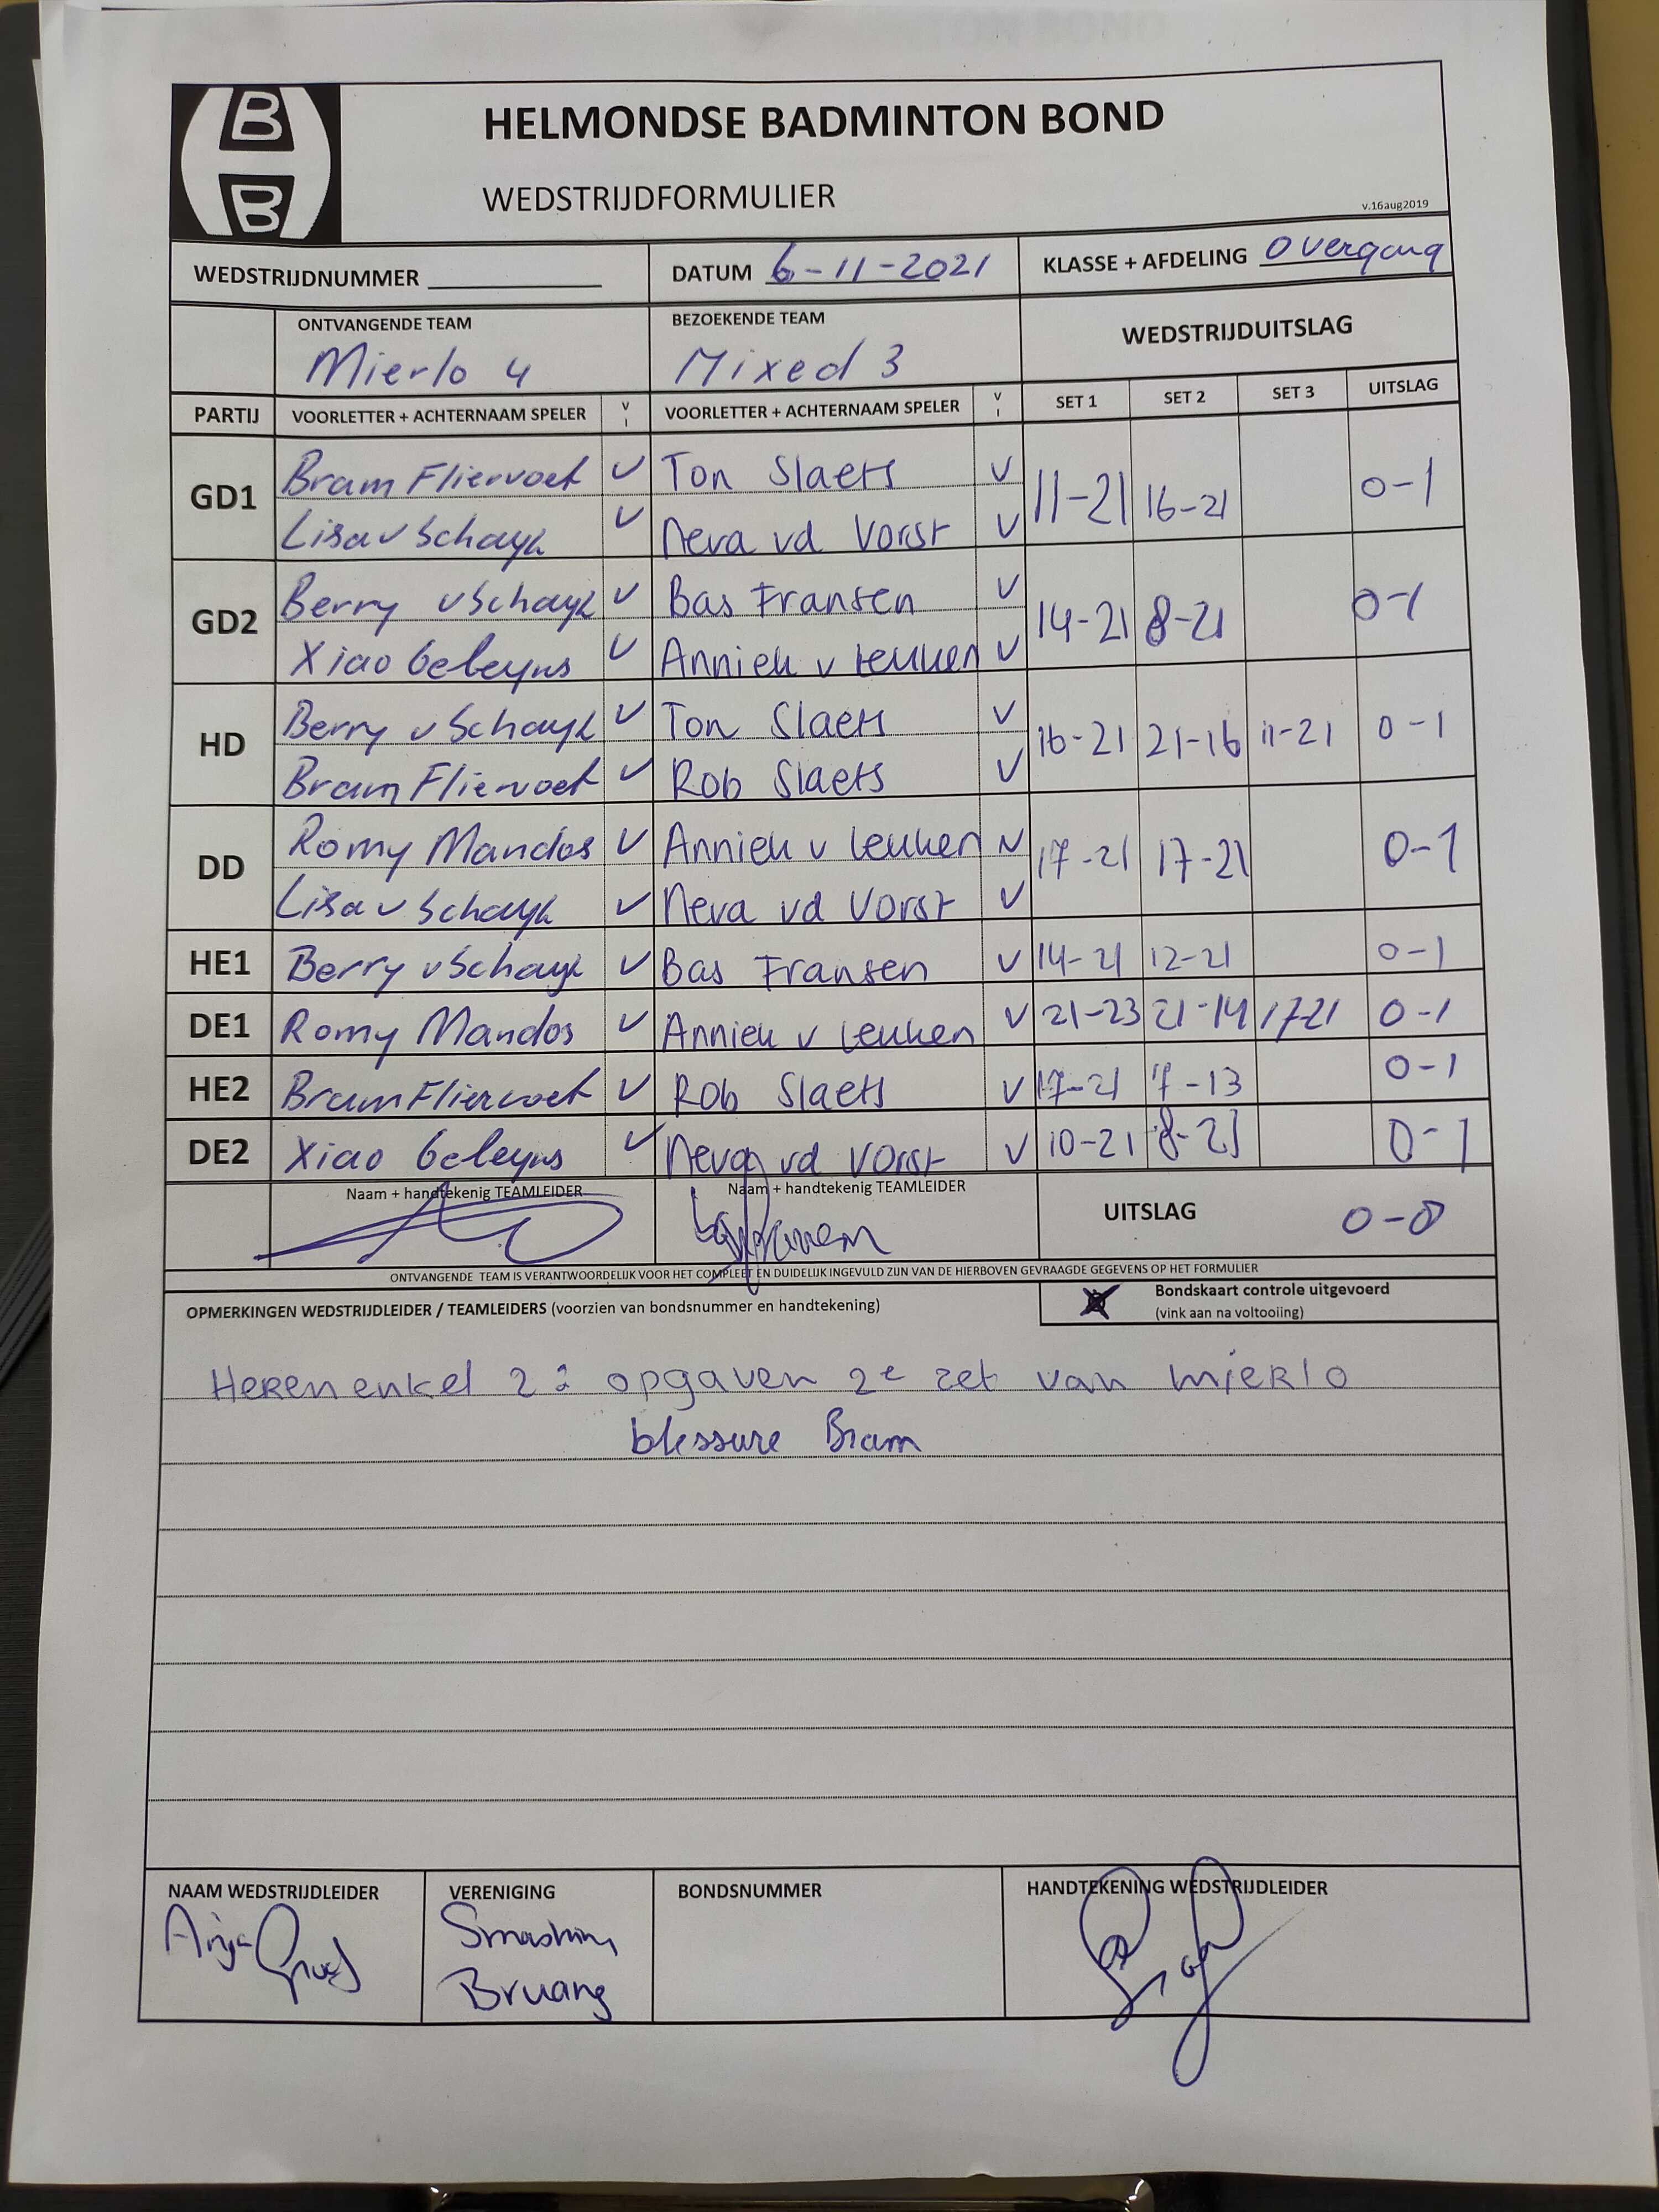 HELMONDSE BADMINTON BOND
WEDSTRIJDFORMULIER
v.16aug2019
WEDSTRIJDNUMMER DATUM 6-11-2021 KLASSE + AFDELING Overgang
ONTVANGENDE TEAM BEZOEKENDE TEAM WEDSTRIJDUITSLAG
Mierlo 4 Mixed 3
PARTIJ VOORLETTER + ACHTERNAAM SPELER V I VOORLETTER + ACHTERNAAM SPELER V I SET 1 SET 2 SET 3 UITSLAG
GD1 Bram Fliervoet V Ton Slaets V 11-21 16-21 0-1
Lisa v Schayk V Neva vd Vorst V
GD2 Berry v Schayk V Bas Fransen V 14-21 8-21 0-1
Xiao Geleyns V Anniek v Leuken V
HD Berry v Schayk V Ton Slaets V 16-21 21-16 11-21 0-1
Bram Fliervoet V Rob Slaets V
DD Romy Mandos V Anniek v Leuken V 17-21 17-21 0-1
Lisa v Schayk V Neva vd Vorst V
HE1 Berry v Schayk V Bas Fransen V 14-21 12-21 0-1
DE1 Romy Mandos V Anniek v Leuken V 21-23 21-14 17-21 0-1
HE2 Bram Fliervoet V Rob Slaets V 17-21 7-13 0-1
DE2 Xiao Geleyns V Neva vd Vorst V 10-21 8-21 0-1
Naam + handtekenig TEAMLEIDER Naam + handtekenig TEAMLEIDER UITSLAG 0-8
ONTVANGENDE TEAM IS VERANTWOORDELIJK VOOR HET COMPLEET EN DUIDELIJK INGEVULD ZIJN VAN DE HIERBOVEN GEVRAAGDE GEGEVENS OP HET FORMULIER
OPMERKINGEN WEDSTRIJDLEIDER / TEAMLEIDERS (voorzien van bondsnummer en handtekening) Bondskaart controle uitgevoerd
(vink aan na voltooiing)
Herenenkel 2: opgaven 2e zet van mierlo
blessure Bram
NAAM WEDSTRIJDLEIDER VERENIGING BONDSNUMMER HANDTEKENING WEDSTRIJDLEIDER
Smashing
Bruang